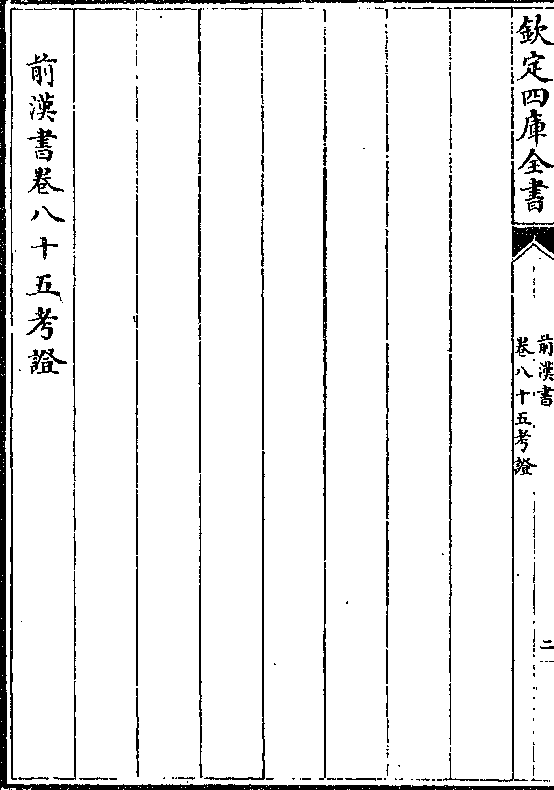 欽定四庫全書
前漢書
卷八十五考證
二
前漢書卷八十五考證